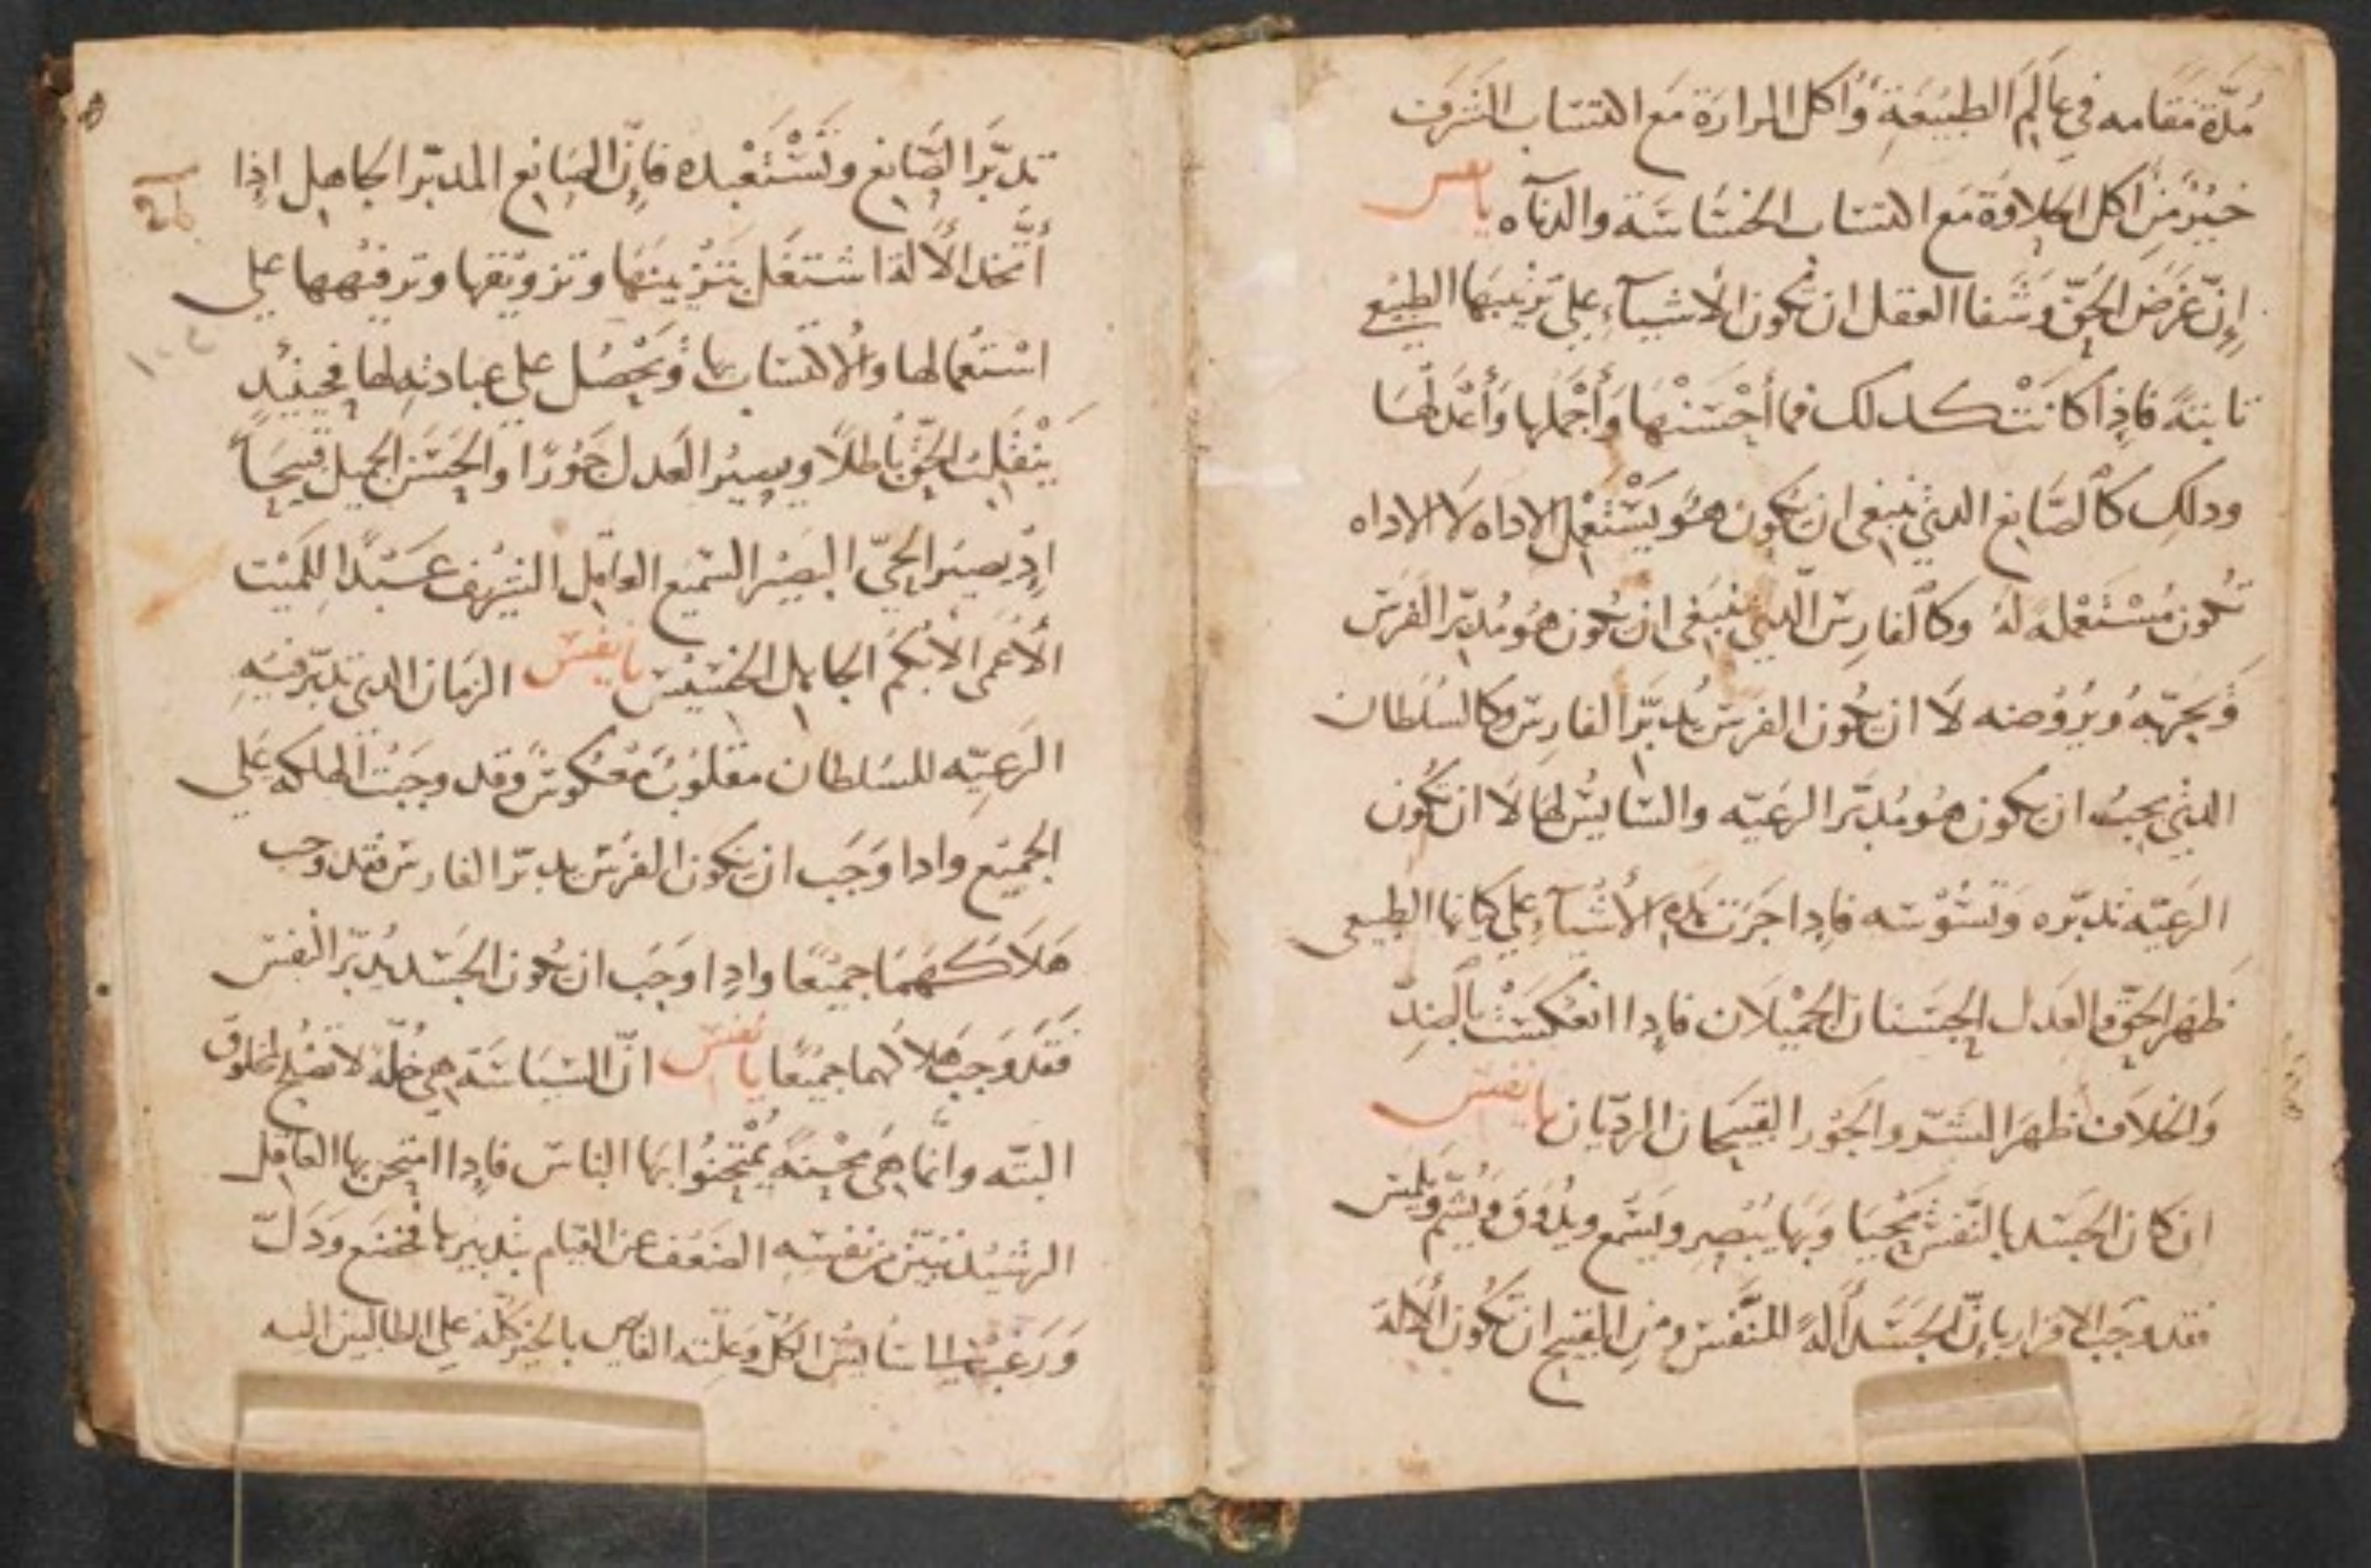 مُدّة مَقَامه في عَالَمِ الطبيعَةِ وأكل المرارة مَع اكتسَاب الشرَف
خيرٌ مِن اكل الحلاوَة مَع اكتسَاب الخسَاسَة والدنآه يا نفس
إنّ غرَض الحَقّ وَشفا العقل ان تكون الأشيآء علي ترتيبهَا الطبيعي
ثابتةً فاِذا كانتْ كدلك فما أحْسَنَهَا وَأجْملها وَأعْدَلهَا
ودلِك كالصَّانع الدي ينبغي ان يَكون هُو يَسْتَعْمِل الاداه لَا الاداه
تكون مُسْتَعْمله لهُ وكالفارِس الّدي ينبَغي ان يَكون هُو مُدبّر الفرَس
وَيُجرّيهُ ويرُوُضه لَا ان يكون الفرَس يُدبّر الفارِس وكالسُلطان
الدي يجبُ ان يكون هُو مُدبّر الرعيّه والسَايسُ لها لَا ان تكُون
الرعيّه تدبّره وَتسُوْسَه فاِدا جَرَت هَده الأشيآءِ علي كيانها الطبيعي
ظهَر الحَقّ والعَدل الحسَنان الجميْلان فاِدا انعكسَتْ بالضِدّ
وَالخلاف ظهَر الشَرّ والجَور القبيحَان الرديّان يا نفس
ان كان الجسَد بالنَّفس يحْيَا وَبها يُبْصِر ويسَمع ويدُوق ويشم ويلمس
فقد وجَب الاقرار باِنّ الجسَد ألةً للنَّفس ومِن القبيح ان تكون الألة
تدبّر الصَّانع وتَسْتَعْبده فاِنّ الصَانع المدبّر الجاهِل اِذا
أتّخد الألة اشتغَل بتزْيينهَا وتزويقها وترفيهها علي
اسْتعْمالها والاكتسَاب بها وَيَحْصُل علي عبادته لها فحينئِدٍ
يَنْقلِبُ الحقّ باطلاً ويصيرُ العَدل جَوْرًا والحَسَن الجميل قبيحَاً
اِدْ يصير الحيّ البصيْر السَميع العاقِل الشريْف عَبْدًا للمَيْت
الأعْمَى الأبْكمُ الجاهل الخسيْس يا نفس الزمَان الدي تدبّر فيهِ
الرَعِيّه للسُلطان مقلوُب معْكوس وَقد وجَبَت الهلكه عَلي
الجميْع وادا وَجَب ان يَكون الفرَس يدبّر الفارس فقد وجب
هَلاَكهمَا جميْعًا وادِا وَجَب ان يكون الجسَد يُدبّر النفس
فقَد وَجَب هلاكهما جميْعًا يا نفس انّ السيَاسَة هي خُلّة لا تصْلح لمخلوق
البتّه وانّما هي محْنةً يمْتحنُوا بهَا الناسَ فاِدا امتحن بها العاقل
الرشيْد تبَيّن مِن نفسِه الضعْف عن القيام بتدبيرها فخضع وَدَلّ
وَرَغب الي سَايسُ الكلّ وَعلّته الفايض بالخير كلّه علي الطالبين اليه